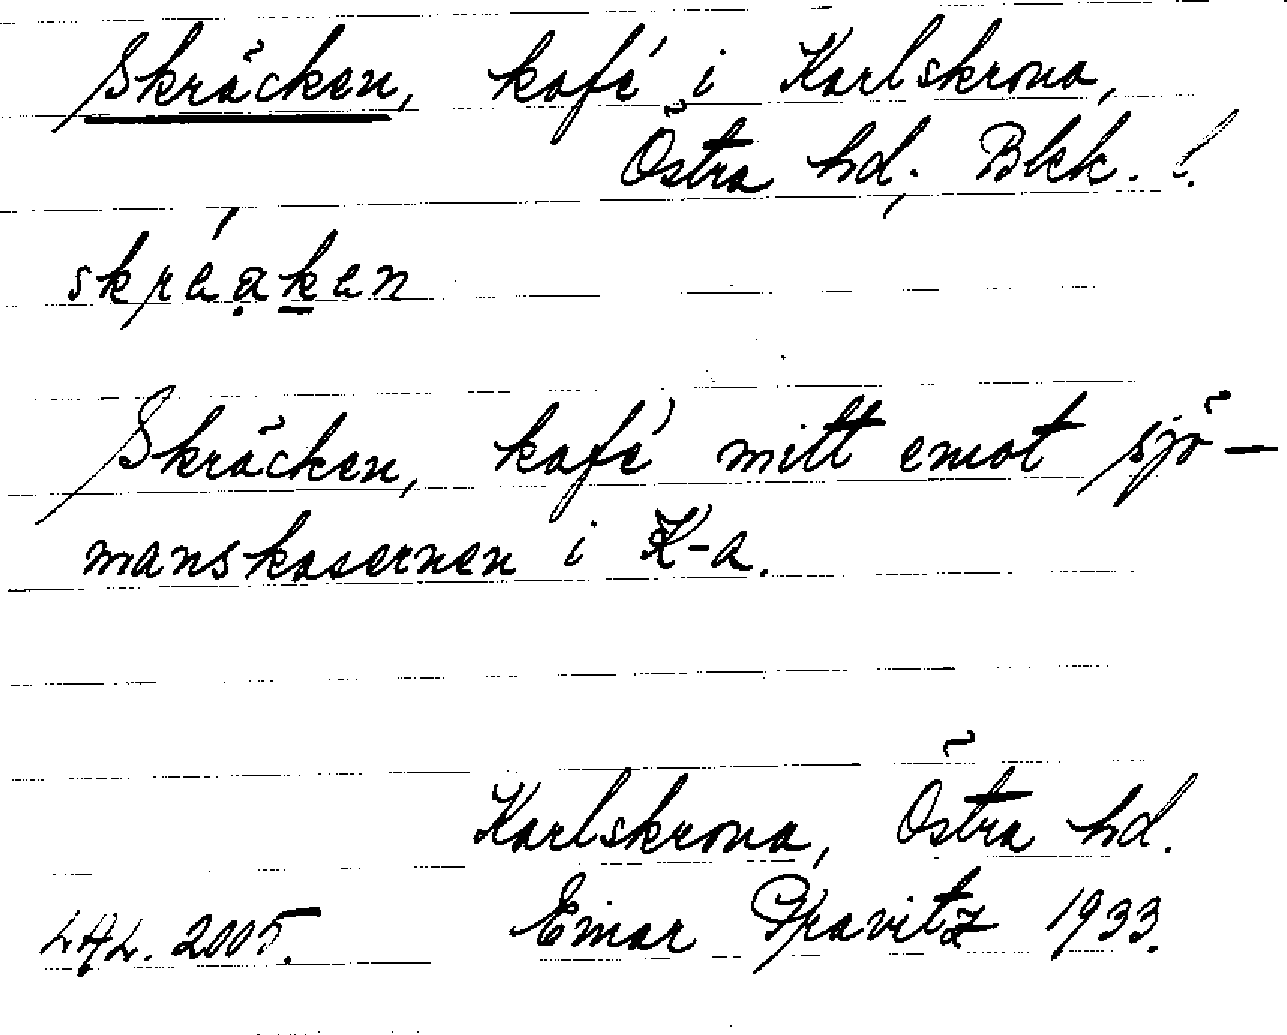 Skräcken, kafé i Karlskrona,
Östra hd; Blek. l.
skréaken
Skräcken, kafé mitt emot sjö-
manskasernen i K-a.
Karlskrona, Östra hd.
LAL. 2005. Einar 1933.